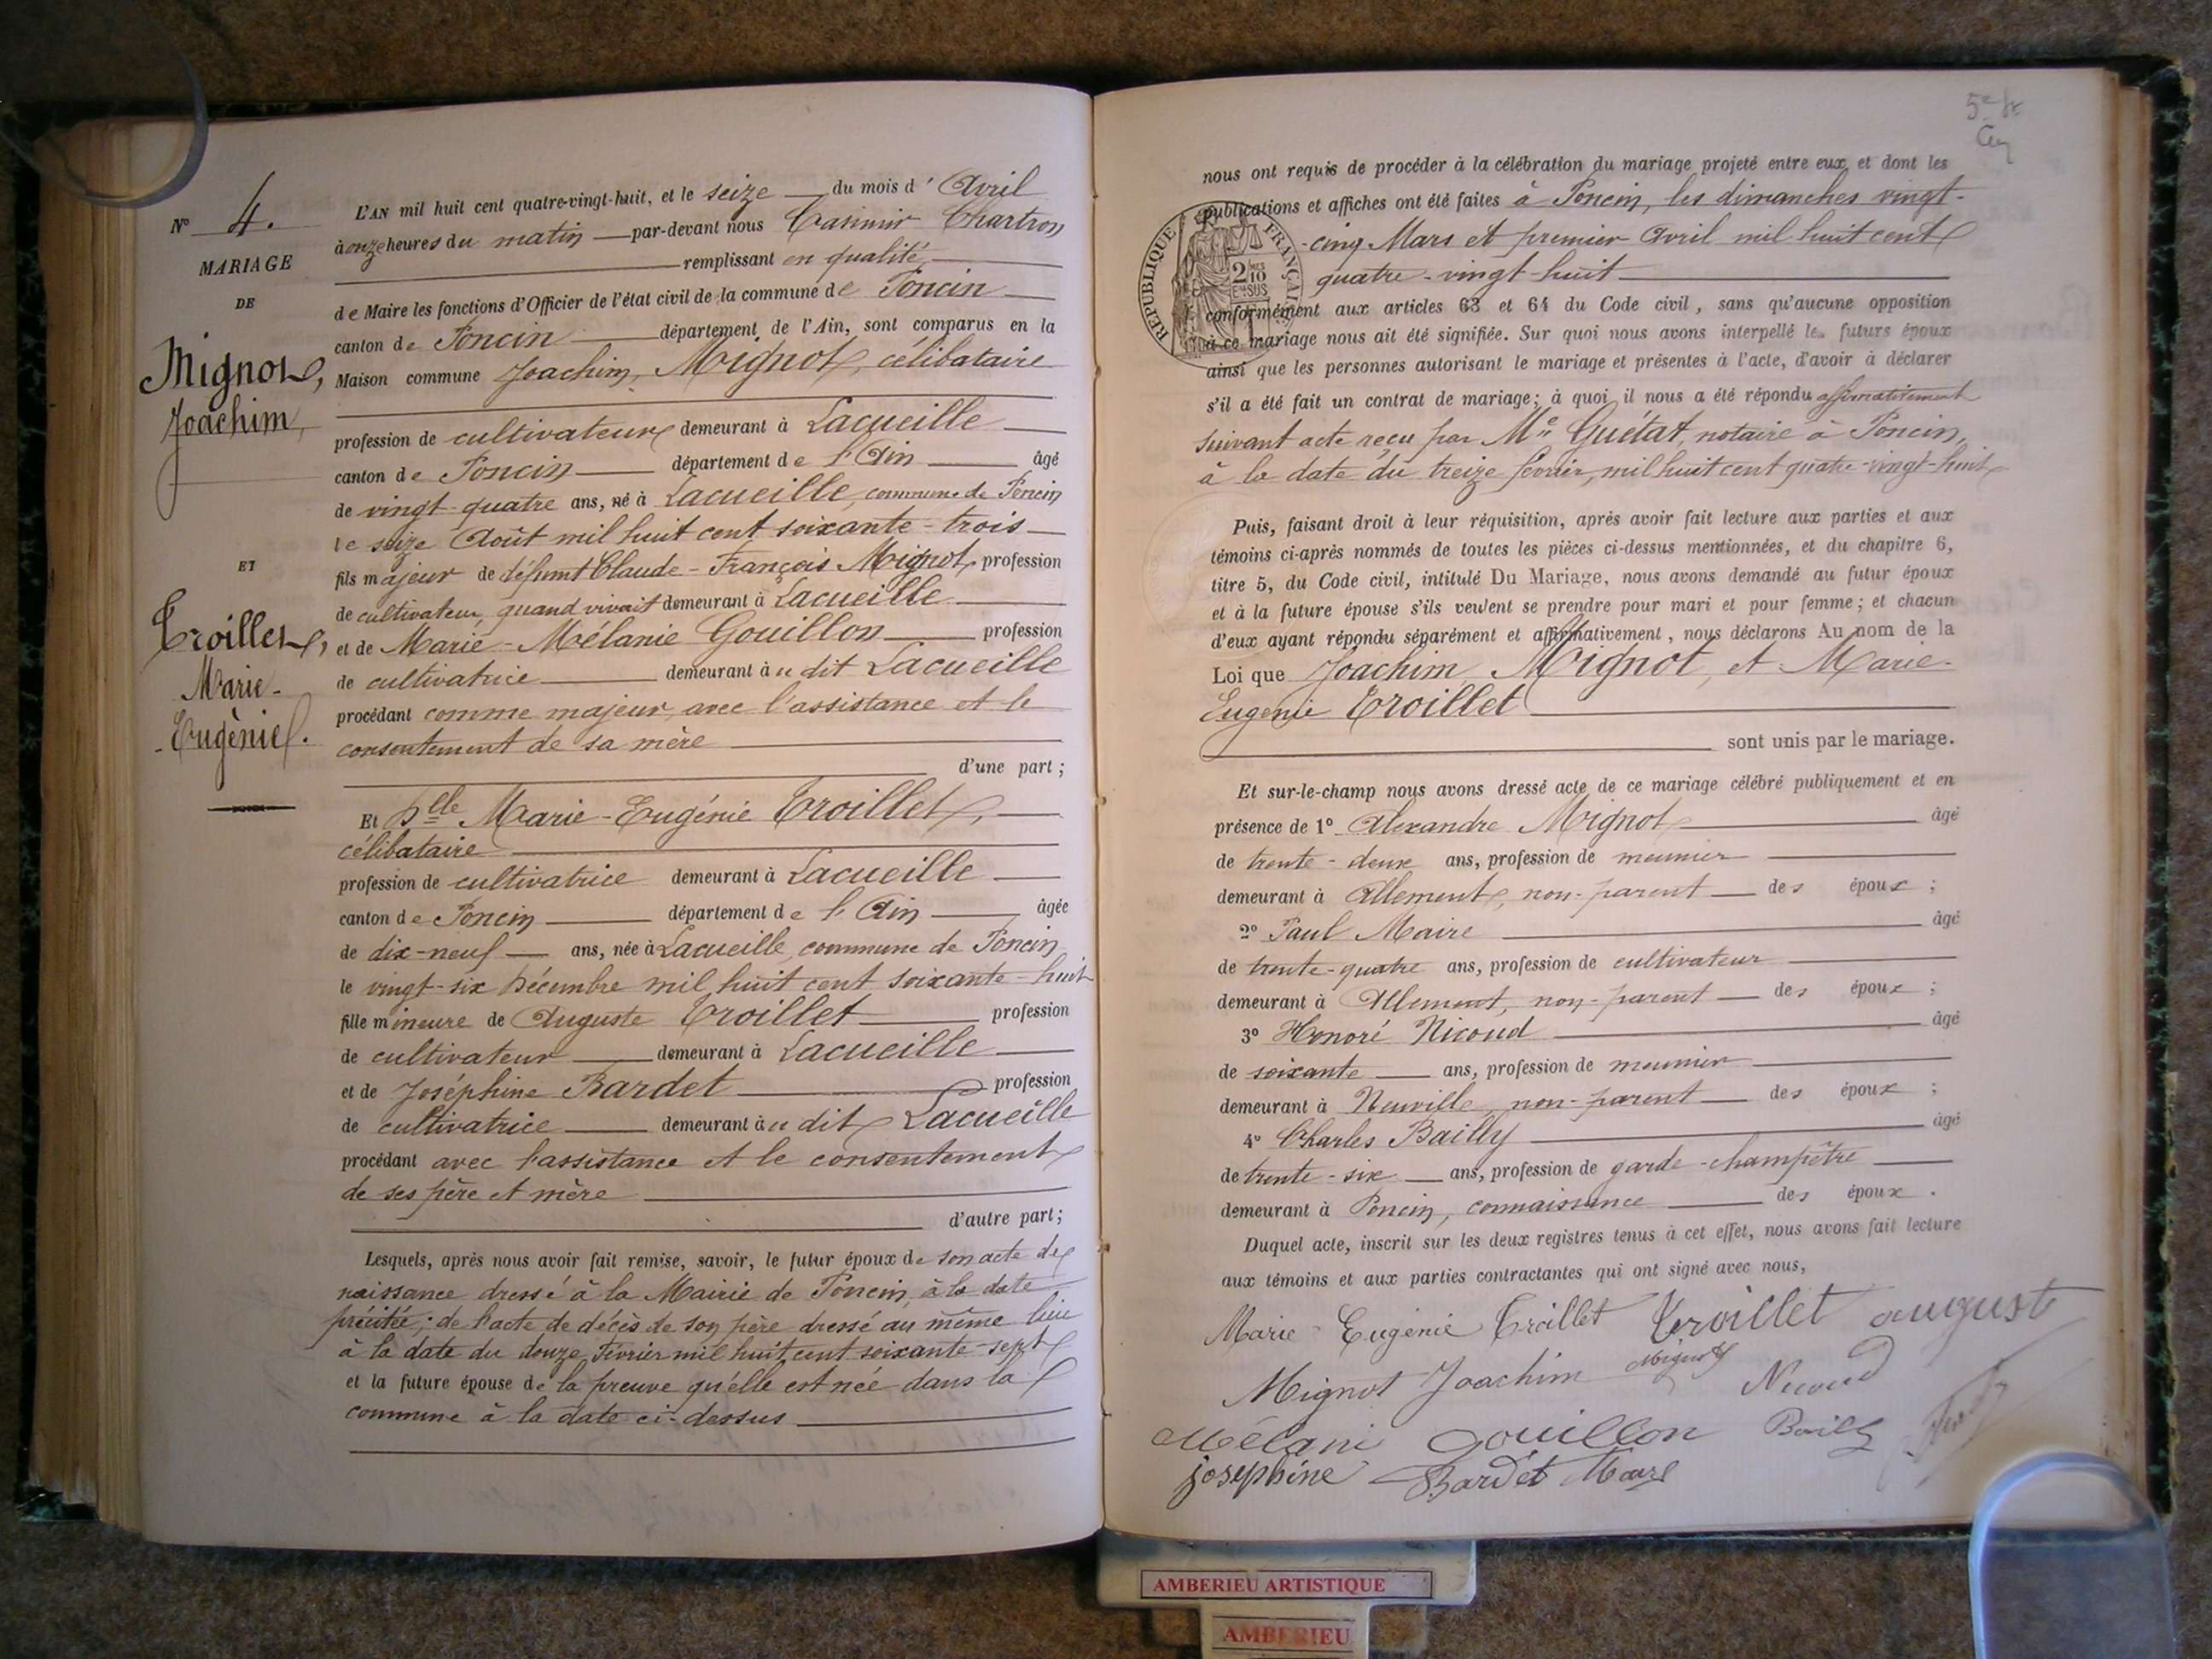 N° 4.
MARIAGE
DE
Mignot,
Joachim,
ET
Troillet,
Marie-
Eugénie.
L'AN mil huit cent quatre-vingt-huit, et le seize du mois d'Avril
à onze heures du matin par-devant nous Casimir Chartron
remplissant en qualité
de Maire les fonctions d'Officier de l'état civil de la commune de Poncin
canton de Poncin département de l'Ain, sont comparus en la
Maison commune Joachim, Mignot, célibataire
profession de cultivateur demeurant à Lacueille
canton de Poncin département de l'Ain âgé
de vingt-quatre ans, né à Lacueille, commune de Poncin
le seize Août mil huit cent soixante-trois
fils majeur de défunt Claude-François Mignot, profession
de cultivateur, quand vivait demeurant à Lacueille
et de Marie-Mélanie Gouillon profession
de cultivatrice demeurant au dit Lacueille
procédant comme majeur, avec l'assistance et le
consentement de sa mère
d'une part ;
Et Dlle Marie-Eugénie Troillet,
célibataire
profession de cultivatrice demeurant à Lacueille
canton de Poncin département de l'Ain âgée
de dix-neuf ans, née à Lacueille, commune de Poncin
le vingt-six Décembre mil huit cent soixante-huit
fille mineure de Auguste Troillet profession
de cultivateur demeurant à Lacueille
et de Joséphine Bardet profession
de cultivatrice demeurant au dit Lacueille
procédant avec l'assistance et le consentement
de ses père et mère
d'autre part ;
Lesquels, après nous avoir fait remise, savoir, le futur époux de son acte de
naissance dressé à la Mairie de Poncin, à la date
précitée ; de l'acte de décès de son père dressé au même lieu
à la date du douze Février mil huit cent soixante-sept
et la future épouse de la preuve qu'elle est née dans la
commune à la date ci-dessus
nous ont requis de procéder à la célébration du mariage projeté entre eux, et dont les
publications et affiches ont été faites à Poncin, les dimanches vingt-
-cinq Mars et premier Avril mil huit cent
quatre-vingt-huit
RÉPUBLIQUE FRANÇAISE
2 MES
10
EN SUS
conformément aux articles 63 et 64 du Code civil, sans qu'aucune opposition
à ce mariage nous ait été signifiée. Sur quoi nous avons interpellé les futurs époux
ainsi que les personnes autorisant le mariage et présentes à l'acte, d'avoir à déclarer
s'il a été fait un contrat de mariage ; à quoi il nous a été répondu affirmativement
suivant acte reçu par Me Guétat, notaire à Poncin,
à la date du treize février, mil huit cent quatre-vingt-huit
Puis, faisant droit à leur réquisition, après avoir fait lecture aux parties et aux
témoins ci-après nommés de toutes les pièces ci-dessus mentionnées, et du chapitre 6,
titre 5, du Code civil, intitulé Du Mariage, nous avons demandé au futur époux
et à la future épouse s'ils veulent se prendre pour mari et pour femme ; et chacun
d'eux ayant répondu séparément et affirmativement, nous déclarons Au nom de la
Loi que Joachim Mignot, et Marie-
Eugénie Troillet
sont unis par le mariage.
Et sur-le-champ nous avons dressé acte de ce mariage célébré publiquement et en
présence de 1° Alexandre Mignot âgé
de trente-deux ans, profession de meunier
demeurant à Allement, non-parent des époux ;
2° Paul Maire âgé
de trente-quatre ans, profession de cultivateur
demeurant à Allement, non-parent des époux ;
3° Honoré Nicoud âgé
de soixante ans, profession de meunier
demeurant à Neuville, non-parent des époux ;
4° Charles Bailly âgé
de trente-six ans, profession de garde-champêtre
demeurant à Poncin, connaissance des époux.
Duquel acte, inscrit sur les deux registres tenus à cet effet, nous avons fait lecture
aux témoins et aux parties contractantes qui ont signé avec nous,
Marie Eugénie Troillet Troillet august
Mignot Joachim Mignot Nicoud
Mélani Gouillon Bailly
joséphine Bardet
AMBERIEU ARTISTIQUE
AMBERIEU